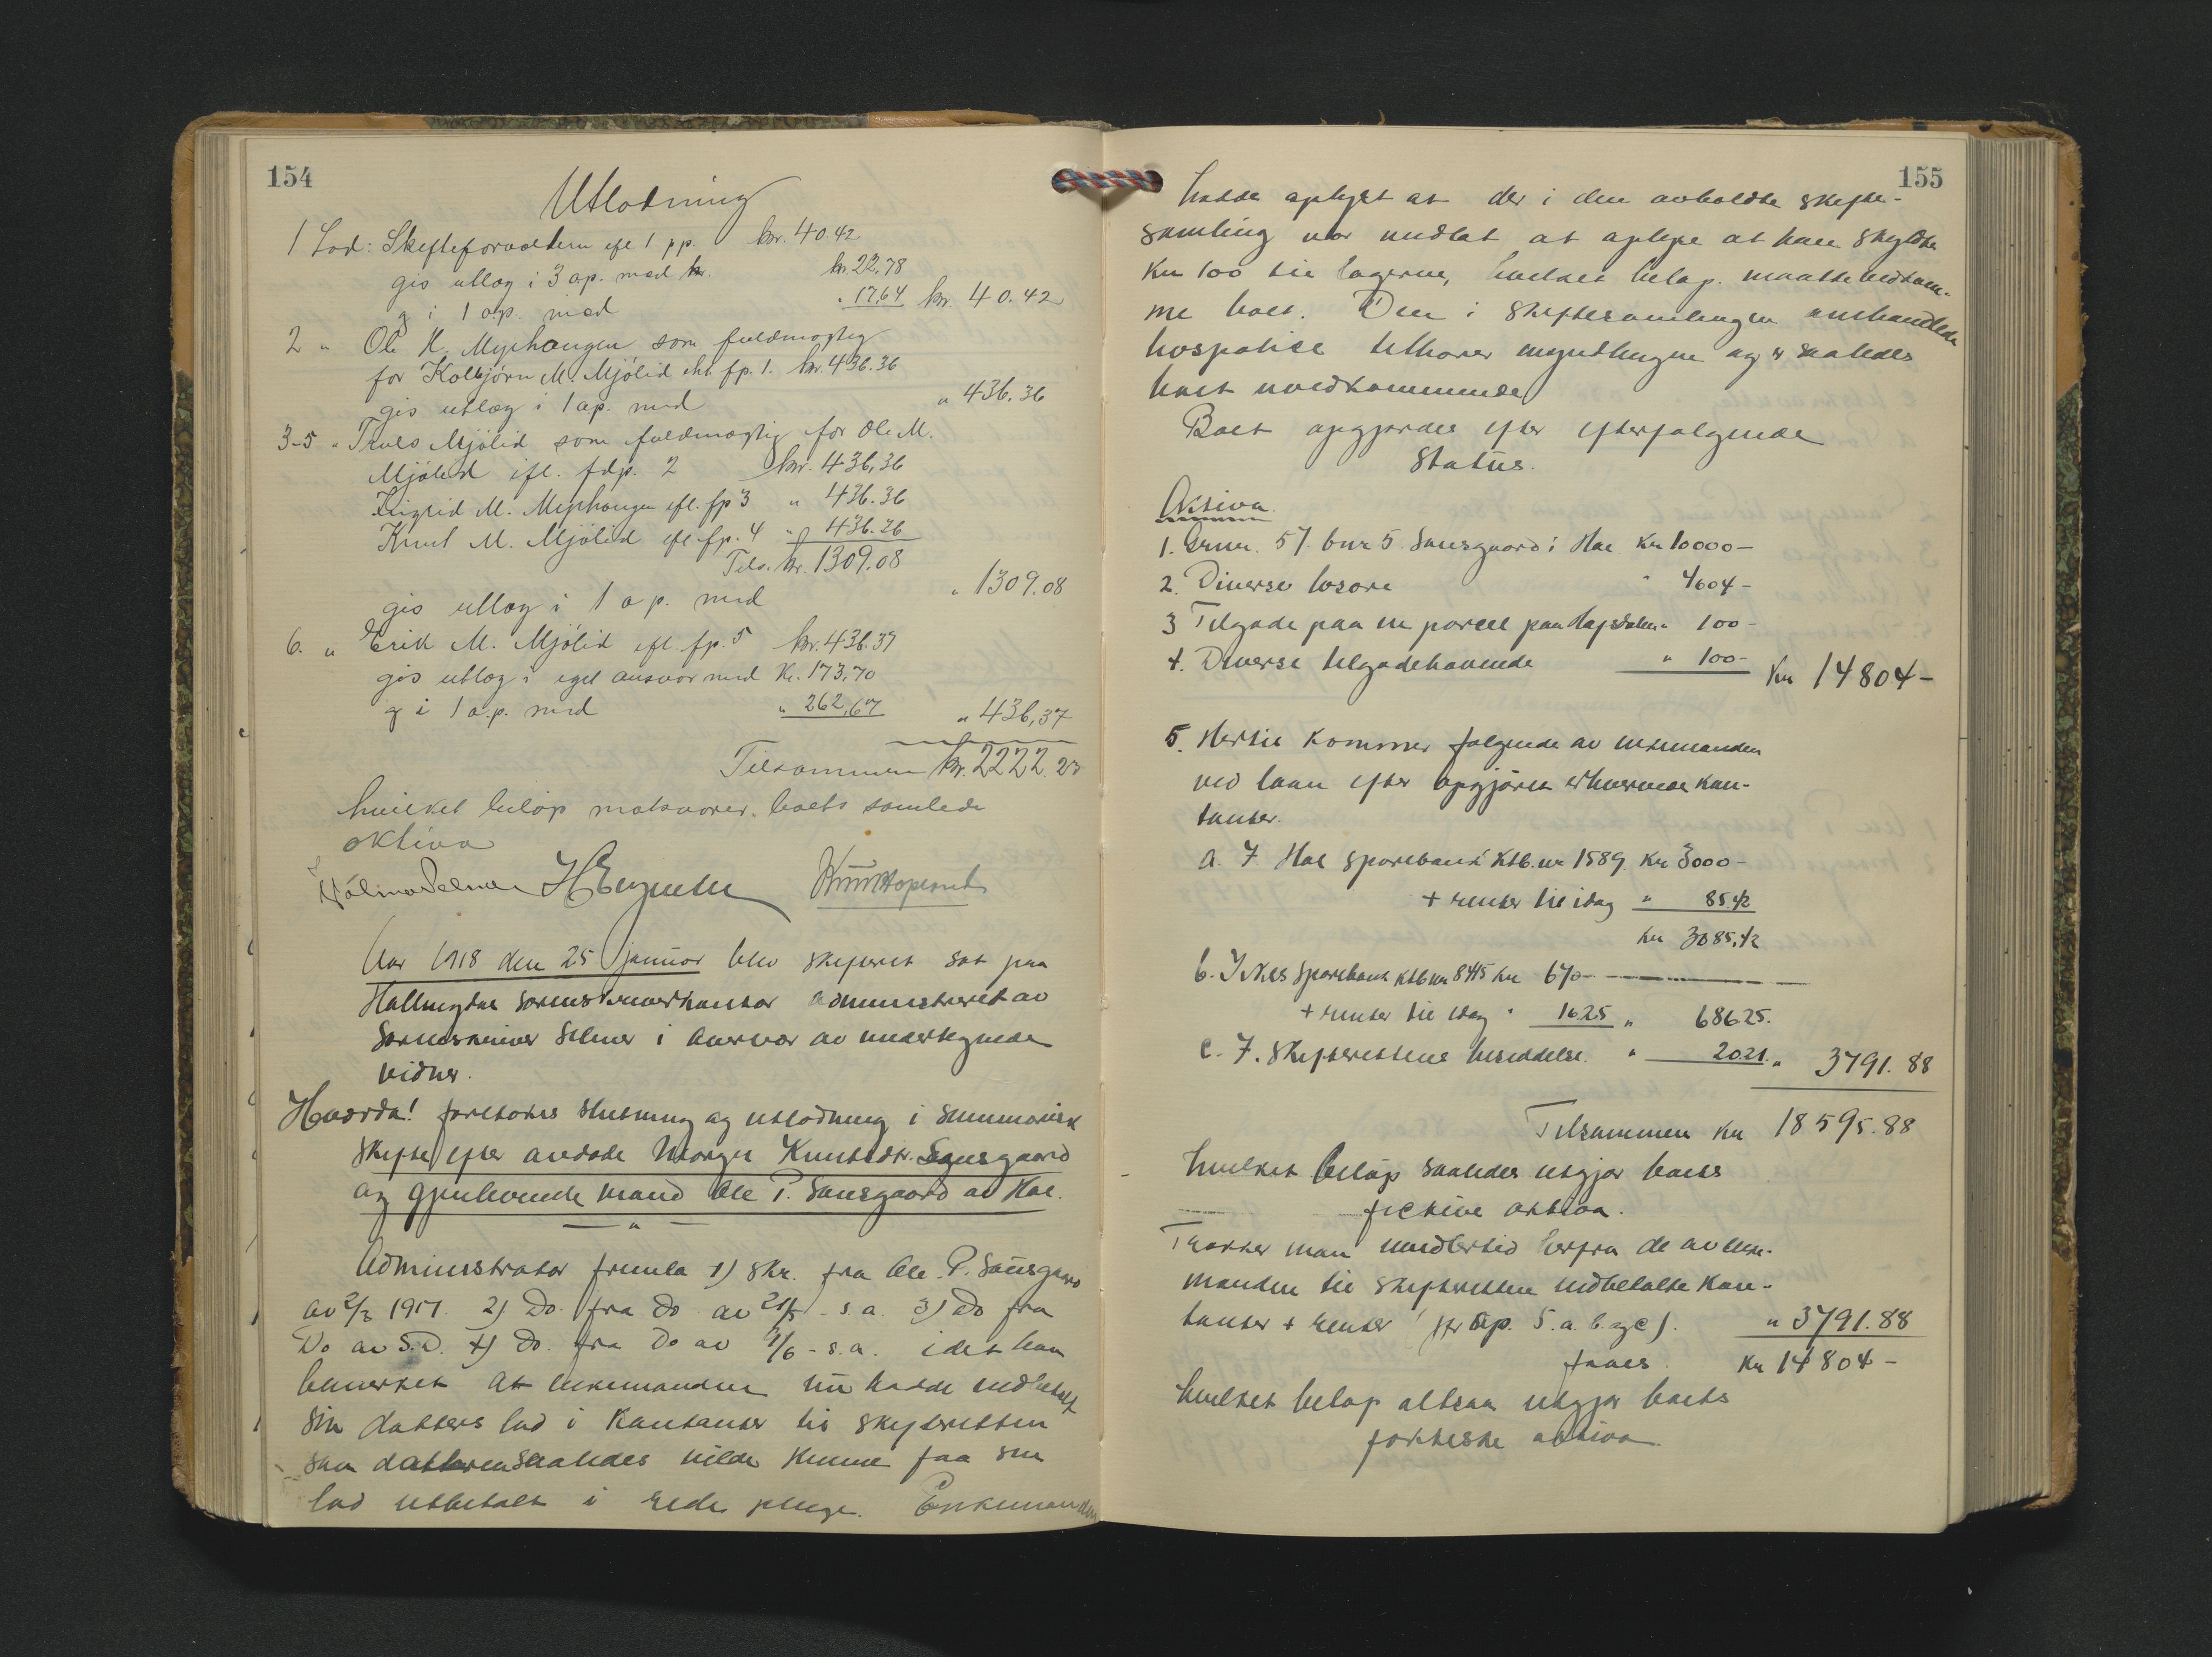 154
Utlodning
1 Lod: Skifteforvalteren efl 1 pp. kr. 40.42
gis utlæg i 3 ap. med kr. kr. 22.78
og i 1 a.p. med " 17.64 kr 40.42
2 " Ole K. Myrhaugen som fuldmægtig
for Kolbjörn M. Mjölid efl. fp. 1. kr. 436.36
gis utlæg i 1 ap. med " 436.36
3-5 " Truls Mjölid som fuldmægtig for Ole M.
Mjölid efl. fdp. 2 kr. 436,36
Sigrid M. Myrhaugen efl. fp 3 " 436.36
Knut M. Mjölid efl. fp. 4 " 436.36
Tils. kr. 1309.08
gis utlæg i 1 a p. med " 1309.08
6. " Erik M. Mjölid efl. fp. 5 kr. 436.37
gis utlæg i eget ansvar med Kr. 173,70
og i 1 a.p. med " 262,67 " 436,37
Tilsammen kr. 2222.23
hvilket belöp motsvarer boets samlede
aktiva
Aar 1918 den 25 januar blev skifteret sat paa
Hallingdal sorenskriverkontor administreret av
Sorenskriver Selmer i overvær av undertegnede
vidner.
Hvorda! foretokes slutning og utlodning i summarisk
skifte efter avdøde Margit Knutsdtr. Sausgaard
og gjenlevende mand Ole P. Sausgaard av Hol.
Administrator fremla 1) Skr. fra Ole P. Sausgaard
av 2/3 1917. 2) Do. fra do av 21/5 - s. a. 3) Do fra
Do av S.D. 4) Do. fra Do av 1/6 - s. a. idet han
bemerket at enkemanden nu hadde indbetalt
sin datters lod i kontanter til skifteretten
som datteren saaledes vilde kunne faa sin
lod utbetalt i rede penge. Enkemanden
155
hadde oplyst at der i den avholdte skifte-
samling var undlat at oplyse at han skyldte
Kr 100 til lagerne, hvilket belöp maatte vedkom-
me boet. Den i skiftesamlingen omhandlede
hospolise tilhører myndlingen og er saaledes
boet uvedkommende
Boet opgjordes efter efterfølgende
Status.
Aktiva
1. Grnr. 57. bnr 5 Sausgaard i Hol Kr 10000 -
2. Diverse løsøre " 4604 -
3 Tilgode paa en parcel paa " 100 -
4. Diverse tilgodehavende " 100 - Kr 14804 -
5. Hertil kommer følgende av enkemanden
ved laan efter opgjöret erhvervede kon-
tanter.
a. I Hol sparebank ktb. nr 1589 Kr 3000 -
+ renter til idag " 85.42
Kr 3085.42
b. I Aals Sparebank ktb nr 8415 kr 670 -
+ renter til idag " 16.25 " 686.25.
c. I Skifterettens besiddelse. " 20.21. " 3791.88
Tilsammen Kr 18595.88
hvilket belöp saaledes utgjør boets
fiktive aktiva.
Trækker man imidlertid herfra de av enke-
manden til skifteretten indbetalte kon-
tanter + renter (jfr Ap. 5. a. b. og c). " 3791.88
faaes Kr 14804 -
hvilket belöp altsaa utgjør boets
faktiske aktiva